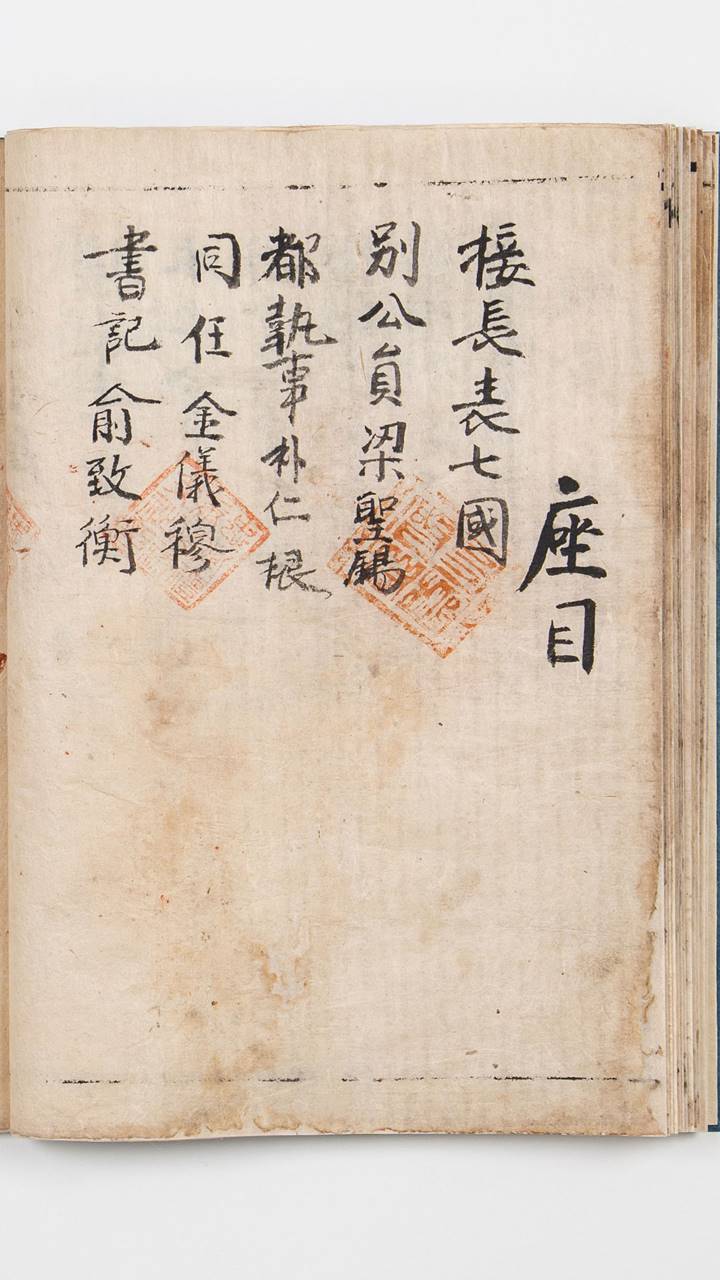 座目
接長表七國
別公員梁聖錫
都執事朴仁根
同任金儀穆
書記俞致衡